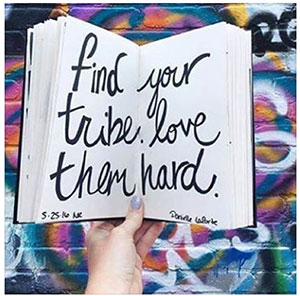 find your
tribe. love
them hard.
5-25-16 NK
Danielle LaPorte